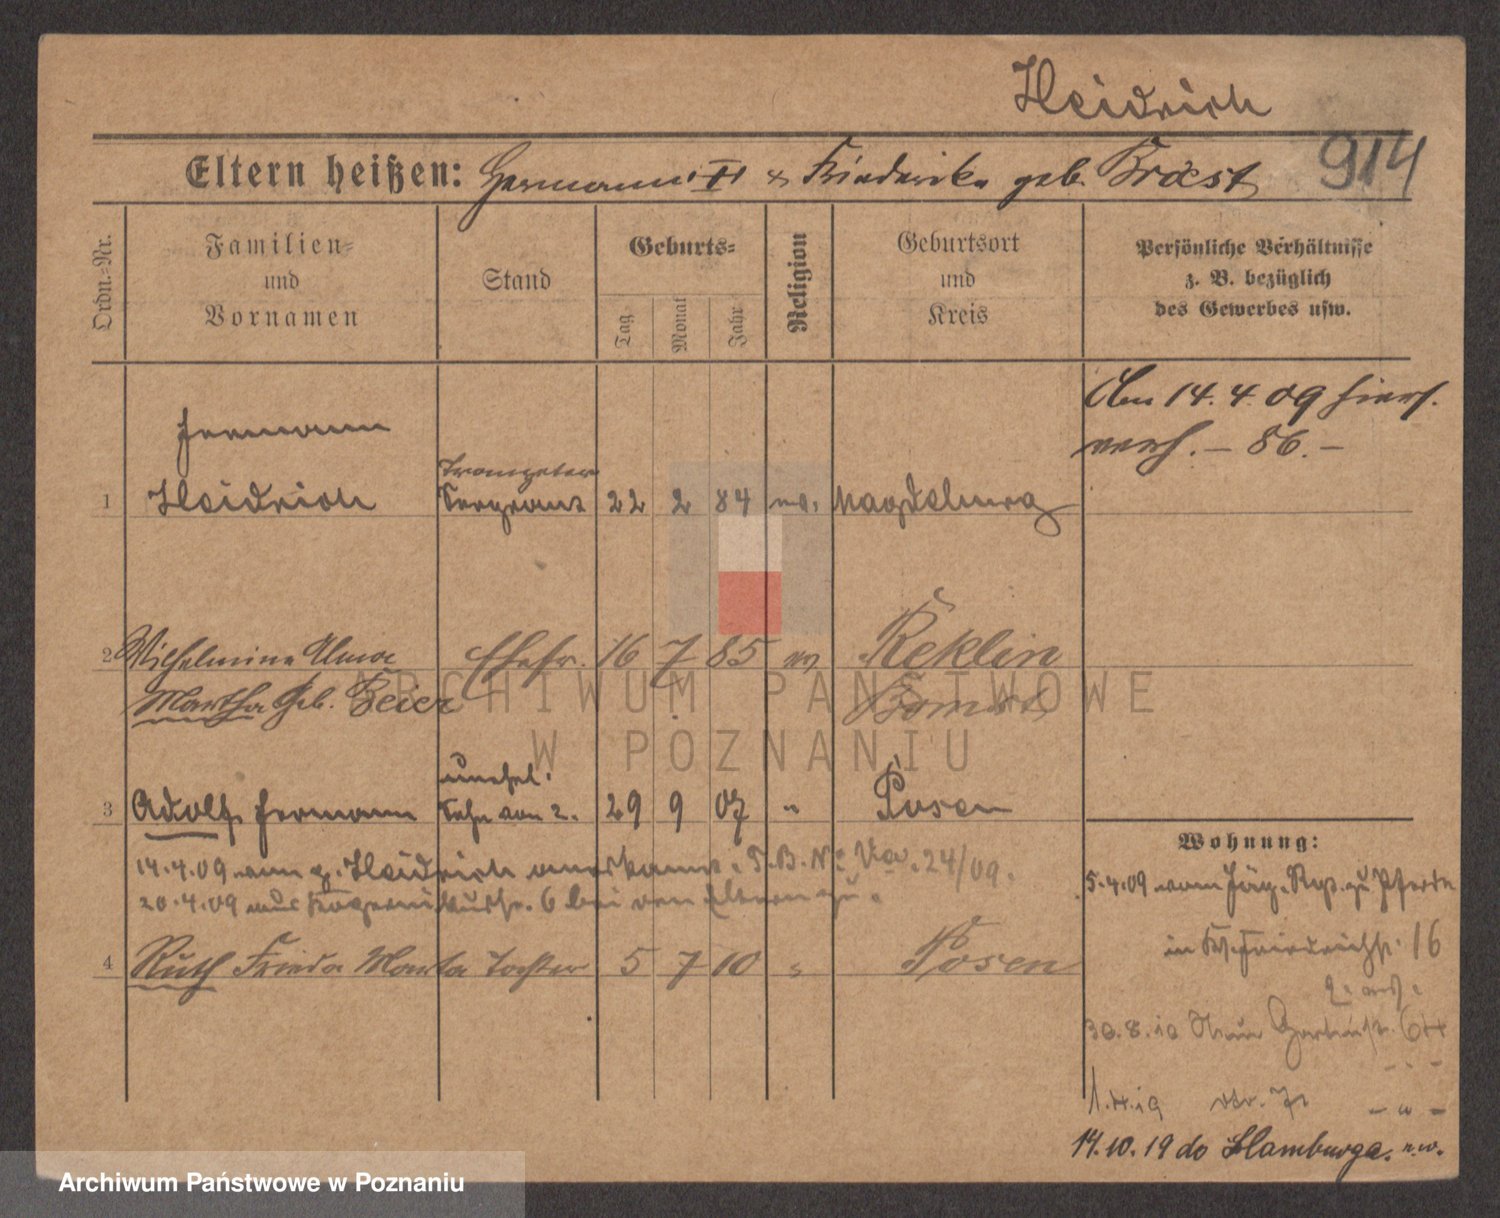 Heidrich
914
Eltern heißen: Hermann II & Friederike geb. Broest
Ordn.-Nr.
Familien- und Vornamen
Stand
Geburts-
Tag
Monat
Jahr
Religion
Geburtsort und Kreis
Persönliche Verhältnisse
z. B. bezüglich
des Gewerbes usw.
Am 14.4.09 hiers.
verh. – 86. –
Hermann
1 Heidrich
Trompeter
Sergeant 22 2 84 ev. Magdeburg
2 Wilhelmine Anna Ehefr. 16 7 85 ev Reklin
Martha geb. Beier Bomst
unehel.
3 Adolf Hermann Sohn von 2. 29 9 07 " Posen
14.4.09 von z. Heidrich anerkannt. T.B. No Va. 24/09.
20.4.09 aus 6 bei den Eltern zu.
4 Ruth Frieda Marta Tochter 5 7 10 " Posen
Wohnung:
5.4.09 vom Jäg. Rgt. zu Pferde
in 16
30.8.10 Neue Gartenstr. 64
1.4.19
14.10.19 do Hamburga. n.w.
ARCHIWUM PAŃSTWOWE
W POZNANIU
Archiwum Państwowe w Poznaniu